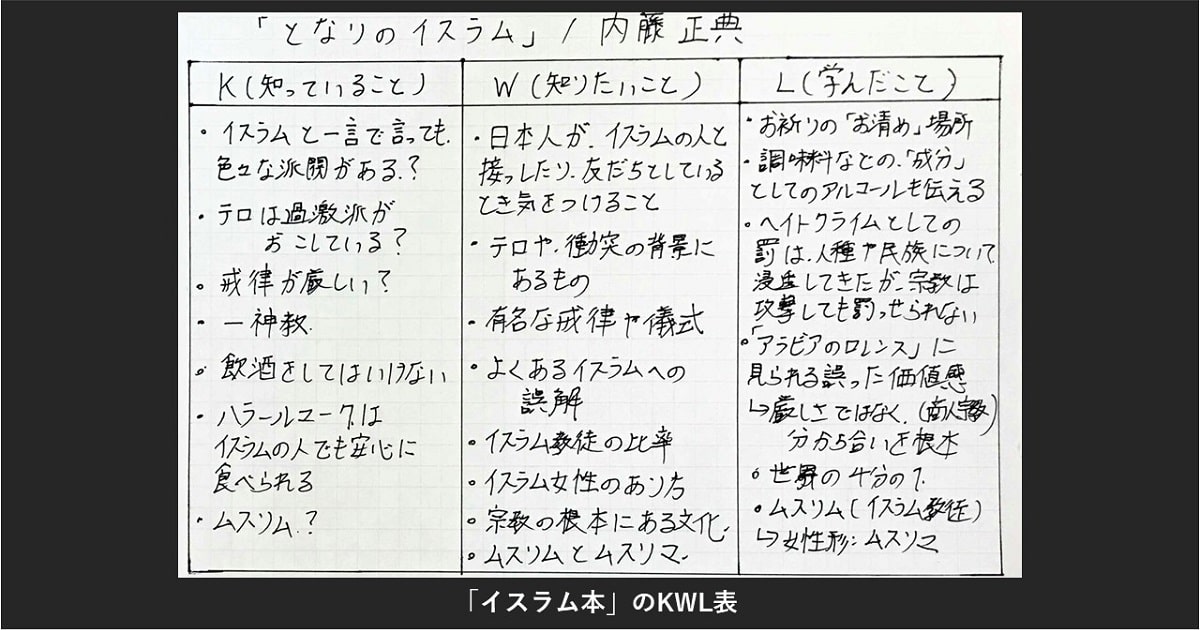 「となりのイスラム」/ 内藤正典
K(知っていること)
・イスラムと一言で言っても、
色々な派閥がある?
・テロは過激派が
おこしている?
・戒律が厳しい?
・一神教.
・飲酒をしてはいけない
・ハラールマークは
イスラムの人でも安心に
食べられる
・ムスリム?
W(知りたいこと)
・日本人が、イスラムの人と
接っしたり、友だちとしている
とき気をつけること
・テロや、衝突の背景に
あるもの
・有名な戒律や儀式
・よくあるイスラムへの
誤解
・イスラム教徒の比率
・イスラム女性のあり方
・宗教の根本にある文化.
・ムスリムとムスリマ.
L(学んだこと)
・お祈りの「お清め」場所
・調味料などの、「成分」
としてのアルコールも伝える
・ヘイトクライムとしての
罰は、人種や民族について
浸透してきたが、宗教は
攻撃しても罰っせられない
・「アラビアのロレンス」に
見られる誤った価値感
↳厳しさではなく、(商人宗教)
分かち合いを根本
・世界の4分の1.
・ムスリム(イスラム教徒)
↳女性形:ムスリマ
「イスラム本」のKWL表